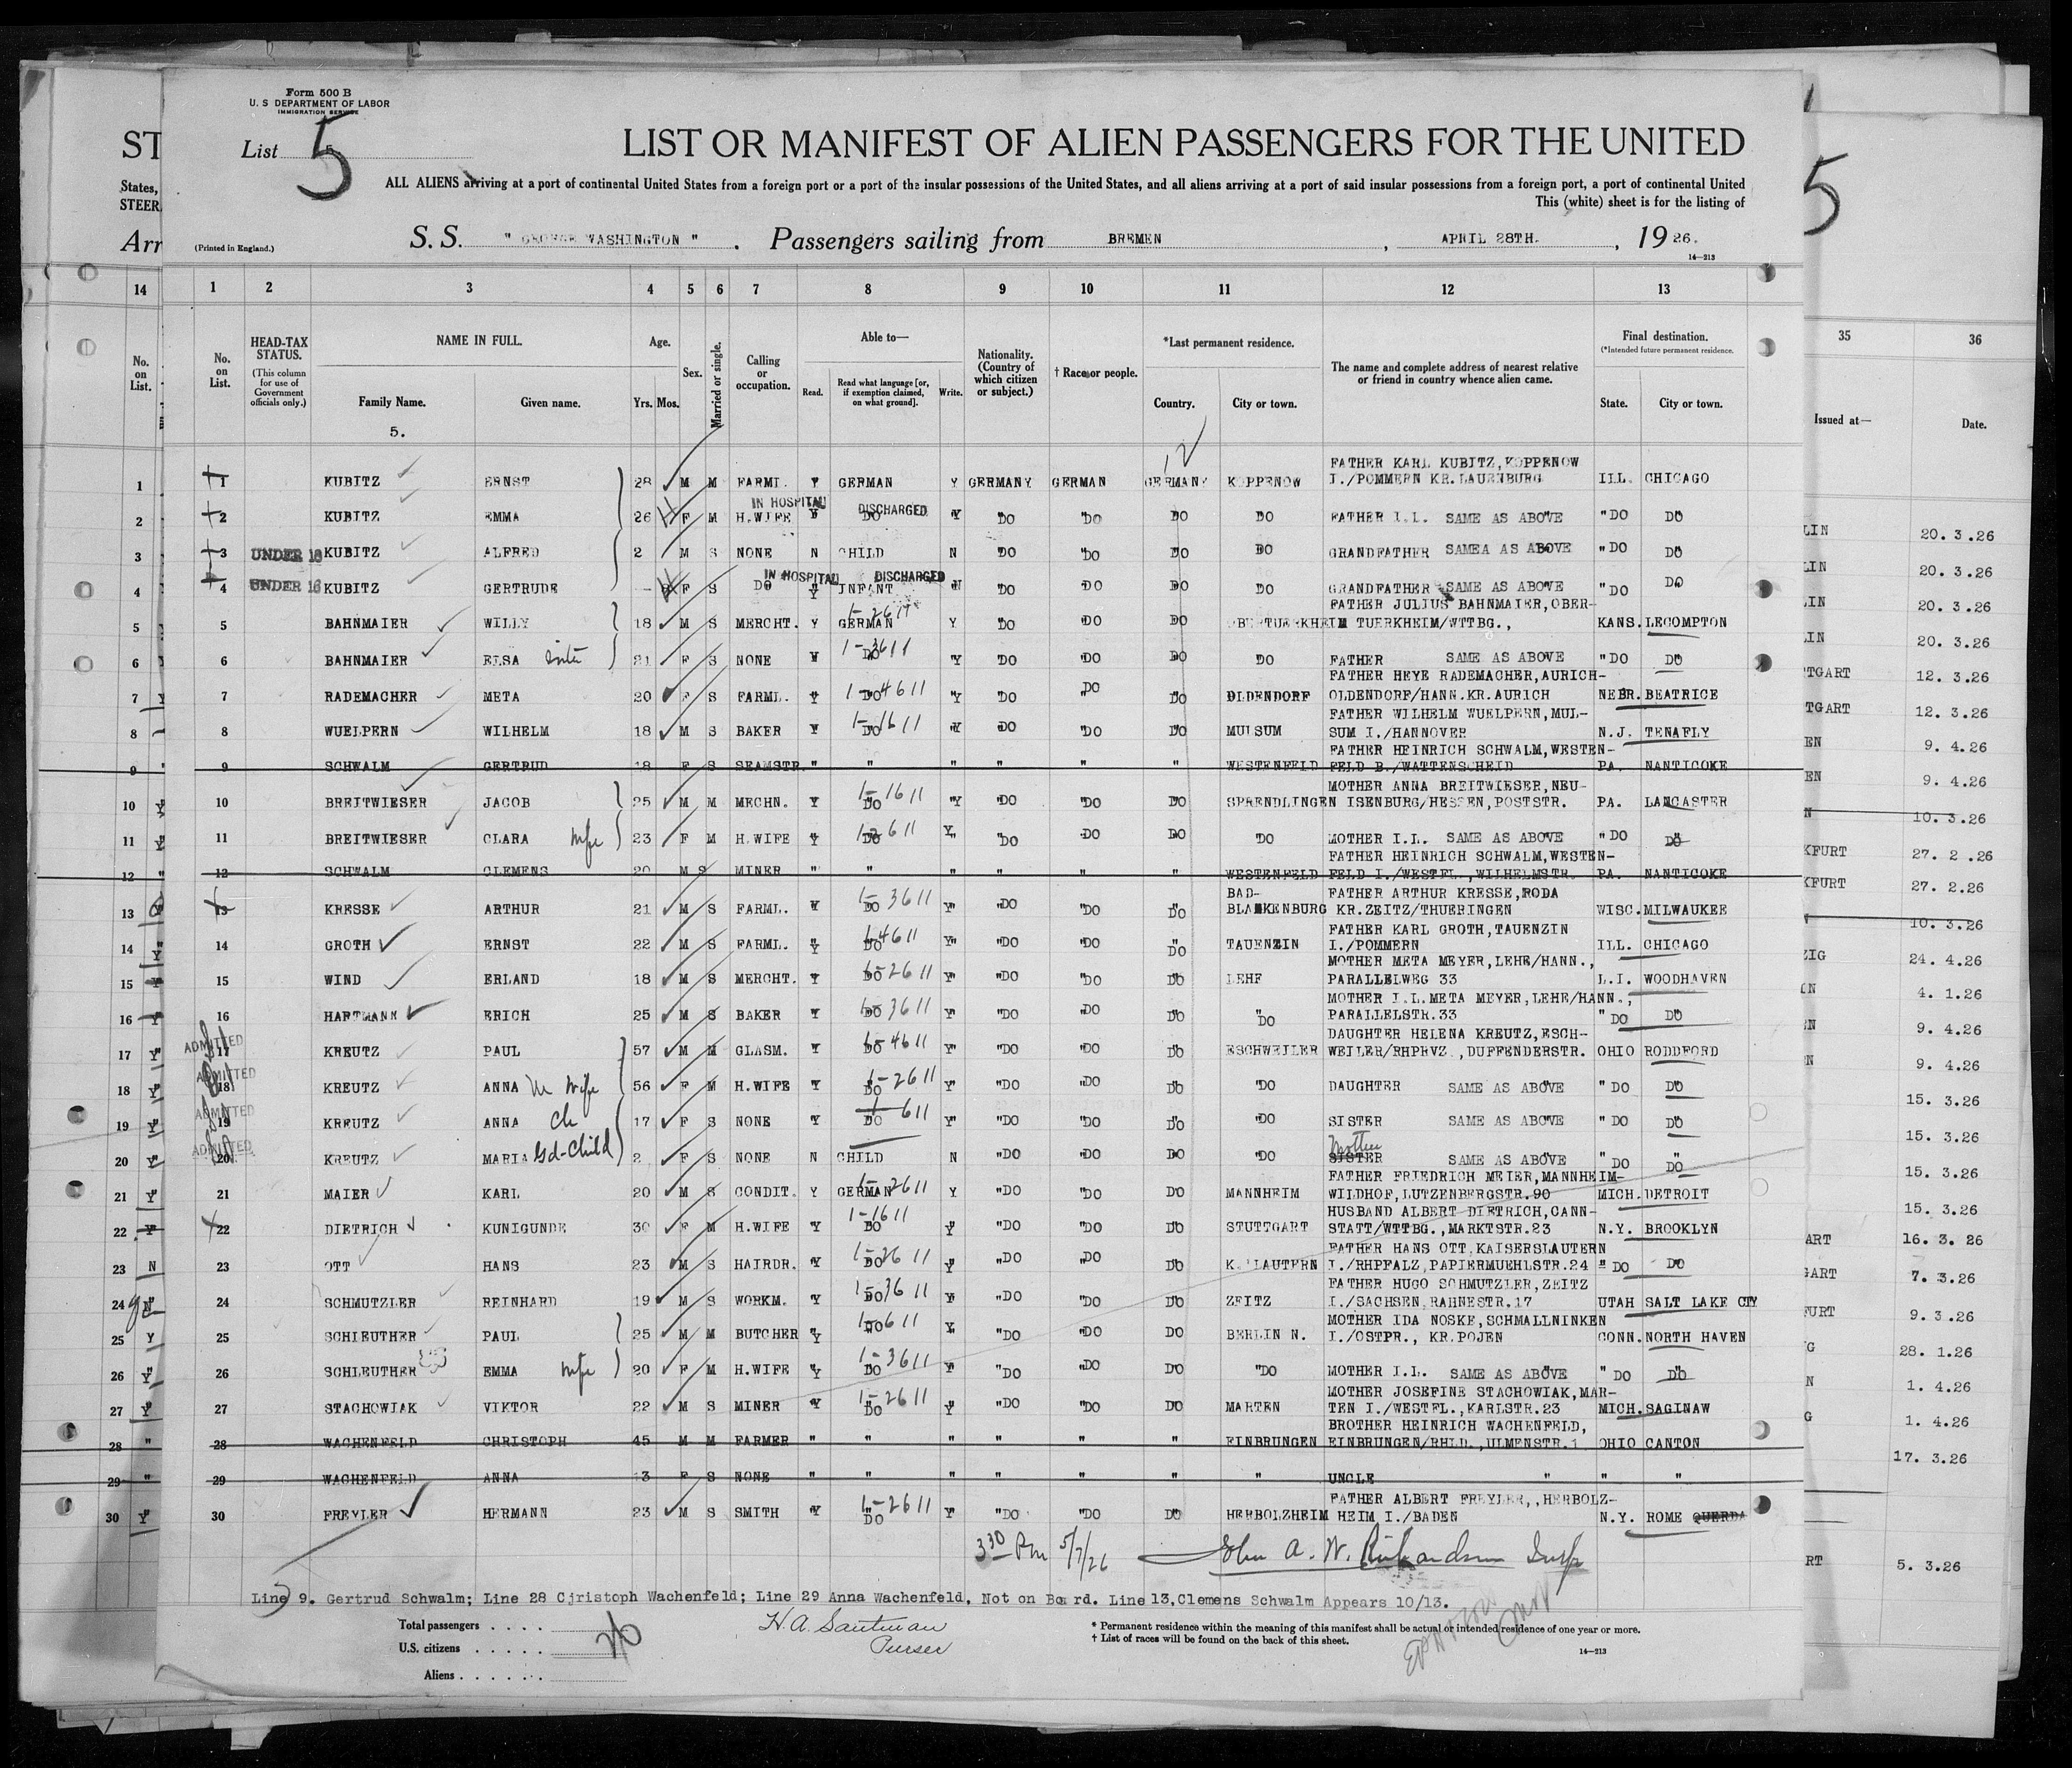 Form 500 B
U. S DEPARTMENT OF LABOR
IMMIGRATION SERVICE
List 5
LIST OR MANIFEST OF ALIEN PASSENGERS FOR THE UNITED
ALL ALIENS arriving at a port of continental United States from a foreign port or a port of the insular possessions of the United States, and all aliens arriving at a port of said insular possessions from a foreign port, a port of continental United
This (white) sheet is for the listing of
(Printed in England.)
S. S. " GEORGE WASHINGTON " . Passengers sailing from BREMEN , APRIL 28TH. , 1926.
14—213
1 2 3 4 5 6 7 8 9 10 11 12 13
No. on List.
HEAD-TAX STATUS.
(This column for use of Government officials only.)
NAME IN FULL.
Family Name. Given name.
5.
Age.
Yrs. Mos.
Sex.
Married or single.
Calling or occupation.
Able to—
Read. Read what language [or, if exemption claimed, on what ground]. Write.
Nationality. (Country of which citizen or subject.)
† Race or people.
*Last permanent residence.
Country. City or town.
The name and complete address of nearest relative or friend in country whence alien came.
Final destination.
(*Intended future permanent residence.
State. City or town.
12
FATHER KARL KUBITZ, KOPPENOW
1 KUBITZ ERNST 28 M M FARML. Y GERMAN Y GERMANY GERMAN GERMANY KOPPENOW I./POMMERN KR.LAUENBURG ILL. CHICAGO
IN HOSPITAL DISCHARGED
2 KUBITZ EMMA 26 F M H.WIFE Y DO Y "DO "DO DO DO FATHER I.L. SAME AS ABOVE "DO DO
3 UNDER 16 KUBITZ ALFRED 2 M S NONE N CHILD N "DO "DO DO DO GRANDFATHER SAMEA AS ABOVE "DO DO
IN HOSPITAL DISCHARGED
4 UNDER 16 KUBITZ GERTRUDE - F S DO INFANT N "DO DO DO DO GRANDFATHER SAME AS ABOVE "DO DO
FATHER JULIUS BAHNMAIER, OBER-
5 BAHNMAIER WILLY 18 M S MERCHT. Y GERMAN Y "DO "DO DO OBERTUERKHEIM TUERKHEIM/WTTBG., KANS. LECOMPTON
6 BAHNMAIER ELSA 21 F S NONE Y DO Y "DO "DO DO DO FATHER SAME AS ABOVE "DO DO
FATHER HEYE RADEMACHER, AURICH-
7 RADEMACHER META 20 F S FARML. Y DO Y "DO "DO DO OLDENDORF OLDENDORF/HANN.KR.AURICH NEBR. BEATRICE
FATHER WILHELM WUELPERN, MUL-
8 WUELPERN WILHELM 18 M S BAKER Y DO Y "DO "DO DO MULSUM SUM I./HANNOVER N.J. TENAFLY
FATHER HEINRICH SCHWALM, WESTEN-
9 SCHWALM GERTRUD 18 F S SEAMSTR. " " " " " " WESTENFELD FELD B./WATTENSCHEID PA. NANTICOKE
MOTHER ANNA BREITWIESER, NEU-
10 BREITWIESER JACOB 25 M M MECHN. Y DO Y "DO "DO DO SPRENDLINGEN ISENBURG/HESSEN, POSTSTR. PA. LANCASTER
11 BREITWIESER CLARA wife 23 F M H.WIFE Y DO Y "DO "DO DO "DO MOTHER I.L. SAME AS ABOVE "DO DO
FATHER HEINRICH SCHWALM, WESTEN-
12 SCHWALM CLEMENS 20 M S MINER " " " " " " WESTENFELD FELD I./WESTFL., WILHELMSTR. PA. NANTICOKE
BAD- FATHER ARTHUR KRESSE, RODA
13 KRESSE ARTHUR 21 M S FARML. Y DO Y "DO "DO DO BLANKENBURG KR.ZEITZ/THUERINGEN WISC. MILWAUKEE
FATHER KARL GROTH, TAUENZIN
14 GROTH ERNST 22 M S FARML. Y DO Y "DO "DO DO TAUENZIN I./POMMERN ILL. CHICAGO
MOTHER META MEYER, LEHE/HANN.,
15 WIND ERLAND 18 M S MERCHT. Y DO Y "DO "DO DO LEHE PARALLELWEG 33 L.I. WOODHAVEN
MOTHER I.L. META MEYER, LEHE/HANN.,
16 HARTMANN ERICH 25 M S BAKER Y DO Y "DO "DO DO DO PARALLELSTR.33 "DO DO
DAUGHTER HELENA KREUTZ, ESCH-
ADMITTED 17 KREUTZ PAUL 57 M M GLASM. Y DO Y "DO "DO DO ESCHWEILER WEILER/RHPRVZ., DUFFENDERSTR. OHIO RODDFORD
ADMITTED 18 KREUTZ ANNA wife 56 F M H.WIFE Y DO Y "DO "DO DO "DO DAUGHTER SAME AS ABOVE "DO DO
ADMITTED 19 KREUTZ ANNA ch 17 F S NONE Y DO Y "DO "DO DO "DO SISTER SAME AS ABOVE "DO DO
Mother
ADMITTED 20 KREUTZ MARIA Gd-Child 2 F S NONE N CHILD N "DO "DO DO "DO SISTER SAME AS ABOVE "DO DO
FATHER FRIEDRICH MEIER, MANNHEIM-
21 MAIER KARL 20 M S CONDIT. Y GERMAN Y "DO "DO DO MANNHEIM WILDHOF, LUTZENBERGSTR.90 MICH. DETROIT
HUSBAND ALBERT DIETRICH, CANN-
22 DIETRICH KUNIGUNDE 30 F M H.WIFE Y DO Y "DO "DO DO STUTTGART STATT/WTTBG., MARKTSTR.23 N.Y. BROOKLYN
FATHER HANS OTT KAISERSLAUTERN
23 OTT HANS 23 M S HAIRDR. Y DO Y "DO "DO DO K.'LAUTERN I./RHPFALZ, PAPIERMUEHLSTR.24 "DO DO
FATHER HUGO SCHMUTZLER, ZEITZ
24 SCHMUTZLER REINHARD 19 M S WORKM. Y DO Y "DO "DO DO ZEITZ I./SACHSEN, RAHNESTR.17 UTAH SALT LAKE CTY
MOTHER IDA NOSKE, SCHMALLNINKEN
25 SCHLEUTHER PAUL 25 M M BUTCHER Y DO Y "DO "DO DO BERLIN N. I./OSTPR., KR.POJEN CONN. NORTH HAVEN
26 SCHLEUTHER EMMA wife 20 F M H.WIFE Y DO Y "DO "DO DO "DO MOTHER I.L. SAME AS ABOVE "DO DO
MOTHER JOSEFINE STACHOWIAK, MAR-
27 STACHOWIAK VIKTOR 22 M S MINER Y DO Y "DO "DO DO MARTEN TEN I./WESTFL., KARLSTR.23 MICH. SAGINAW
BROTHER HEINRICH WACHENFELD,
28 WACHENFELD CHRISTOPH 45 M M FARMER " " " " " " EINBRUNGEN EINBRUNGEN/RHLD., ULMENSTR.1 OHIO CANTON
29 WACHENFELD ANNA 13 F S NONE " " " " " " " UNCLE " " "
FATHER ALBERT FREYLER,,HERBOLZ-
30 FREYLER HERMANN 23 M S SMITH Y DO Y "DO "DO DO HERBOLZHEIM HEIM I./BADEN N.Y. ROME
3 30 Pm 5/7/26 John A. W. Richardson Insp
Line 9. Gertrud Schwalm; Line 28 Cjristoph Wachenfeld; Line 29 Anna Wachenfeld, Not on Board. Line 13,Clemens Schwalm Appears 10/13.
Total passengers . . . .
U.S. citizens . . . . .
Aliens . . . . . .
H. A. Santman
Purser
* Permanent residence within the meaning of this manifest shall be actual or intended residence of one year or more.
† List of races will be found on the back of this sheet.
14—213
ST
States,
STEER
Arr
14
No. on List.
5
35 36
Issued at— Date.
LIN 20.3.26
LIN 20.3.26
LIN 20.3.26
LIN 20.3.26
TGART 12.3.26
TGART 12.3.26
EN 9.4.26
EN 9.4.26
N 10.3.26
KFURT 27.2.26
KFURT 27.2.26
10.3.26
ZIG 24.4.26
N 4.1.26
EN 9.4.26
N 9.4.26
15.3.26
15.3.26
15.3.26
15.3.26
ART 16.3.26
GART 7.3.26
FURT 9.3.26
G 28.1.26
N 1.4.26
G 1.4.26
17.3.26
RT 5.3.26